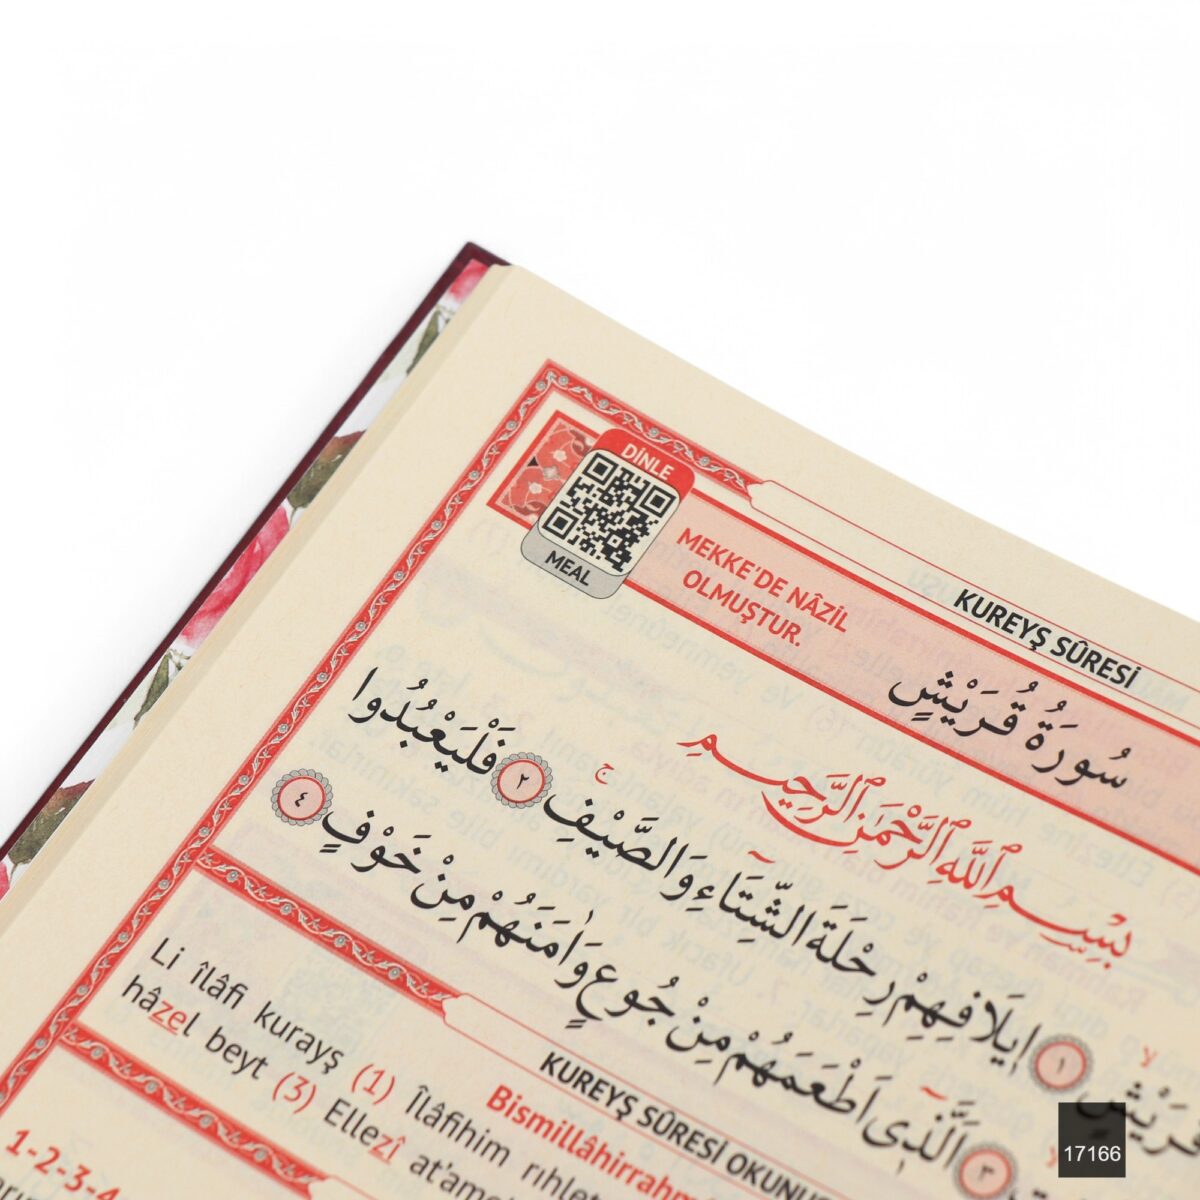 DİNLE
MEAL
MEKKE'DE NÂZİL
OLMUŞTUR.
KUREYŞ SÛRESİ
سُورَةُ قُرَيْشٍ
بِسْمِ اللّٰهِ الرَّحْمٰنِ الرَّحِيمِ
١ اٖيلَافِهِمْ رِحْلَةَ الشِّتَٓاءِ وَالصَّيْفِۚ ٢ فَلْيَعْبُدُوا
٣ اَلَّذٖٓي اَطْعَمَهُمْ مِنْ جُوعٍ وَاٰمَنَهُمْ مِنْ خَوْفٍ ٤
KUREYŞ SÛRESİ OKUNUŞ
Bismillâhirrahm
Li îlâfi kurayş (1) Îlâfihim rıhlet
hâzel beyt (3) Ellezî at'ame
1-2-3-4
17166